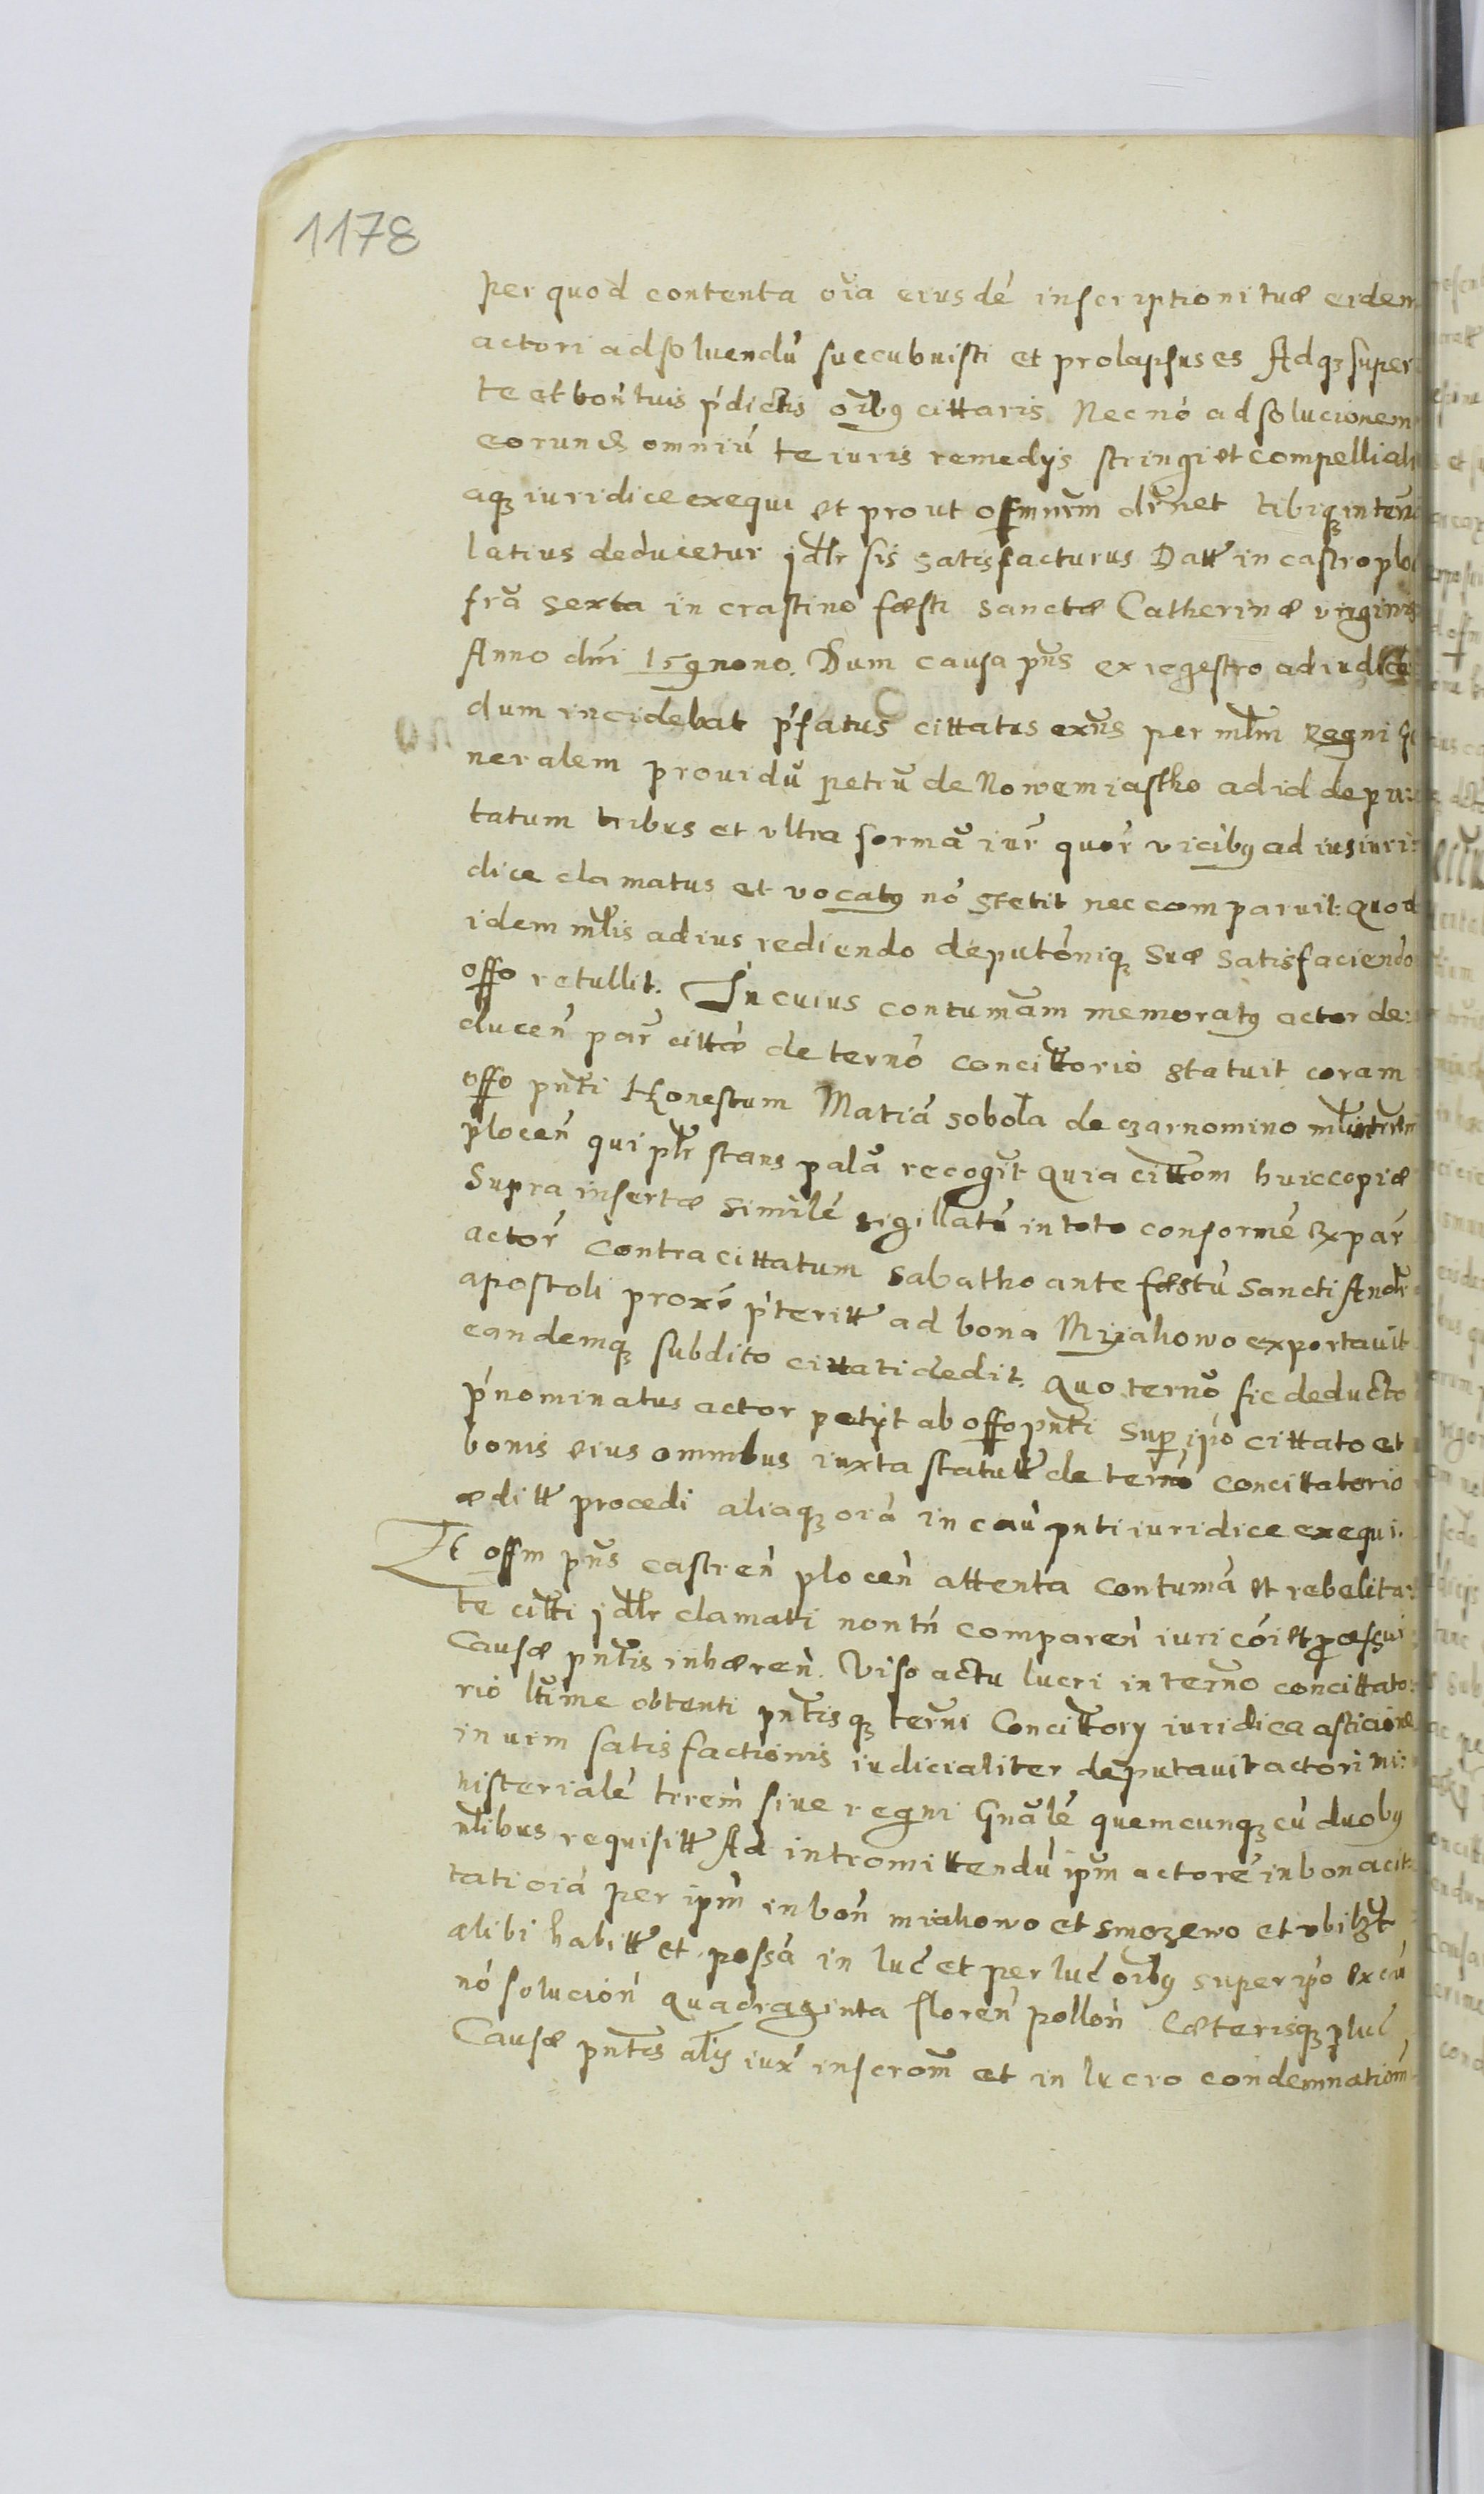 1178
per quod contenta oĩa eiusdé inscriptioni tuæ eidem
actori ad soluendũ succubuisti et prolapsus es Adq3 super
te et boñ tuis p̃dictis oĩbꝰ cittaris Nec nó ad solucionem
eorund omniũ te iuris remedijs stringi et compelli ali
aq3 iuridice exequi et prout offm nrm dr̃net tibiq3 in term̃
latius deducetur jdlr sis satisfacturus Datt in castro ploc
frã sexta in crastino fæsti sanctæ Catherinæ virginis
Anno dńi 159nono. Dum causa pñs ex regestro ad iudican
dum incidebat p̃fatus cittatus exñs per mlm Regni Ge
neralem prouidũ petrũ de Nowemiastho ad id depu:
tatum tribus et vltra formã iur̃ quor̃ vicibꝰ ad ius iuri:
dice clamatus et vocatꝰ nó stetit nec comparuit: quod
idem mlis ad ius rediendo deputóniq3 suæ satisfaciendo
offo retullit. In cuius contumãm memoratꝰ actor de:
ducen̂ par̃ cittæ de ternó concittorio statuit coram
offo pnti Honestum Matiã sobola de czarnomino mlm trrem
plocen̂ qui plr stans palã recogit quia cittom huic copiæ
supra insertæ similé sigillatũ in toto conformé Ex par̃
actor̃ contra cittatum sabatho ante fæstũ Sancti Andr̃
apostoli proxé p̃teritt ad bona Miiahowo exportauit
eandemq3 subdito cittati dedit. quo ternó sic deducto
p̃nominatus actor petijt ab offo pnti super ipõ cittato et
bonis eius omnibus iuxta statutt de ternó concittatorio
æditt procedi aliaq3 oiã in cau pnti iuridice exequi.
Et offm pñs castren̂ plocen̂ attenta contumã et rebelita:
te citti jdlr clamati non tń comparen̂ iuri cói et processui
Causæ pntis inhæren̂. Viso actu lucri in terno concittato:
rio ltime obtenti pntisq3 terni Concittorij iuridica asticione
in vim satisfactionis iudicialiter deputauit actori mi:
nisterialé trrem siue regni Gnãlé quemcunq3 cũ duobꝰ
nlibus requisitt Ad intromittendũ ipm actoré in bona cit:
tati oiã per ipm in boñ miahowo et smozewo et vbilzt
alibi habitt et possã in luc et per luc oĩbꝰ super ipõ ex cũ
nó solución quadraginta floren̂ pollon̂ Cæterisq3 p luc
Causæ pntis alijs iux̃ inscrom et in lucro condemnatiom